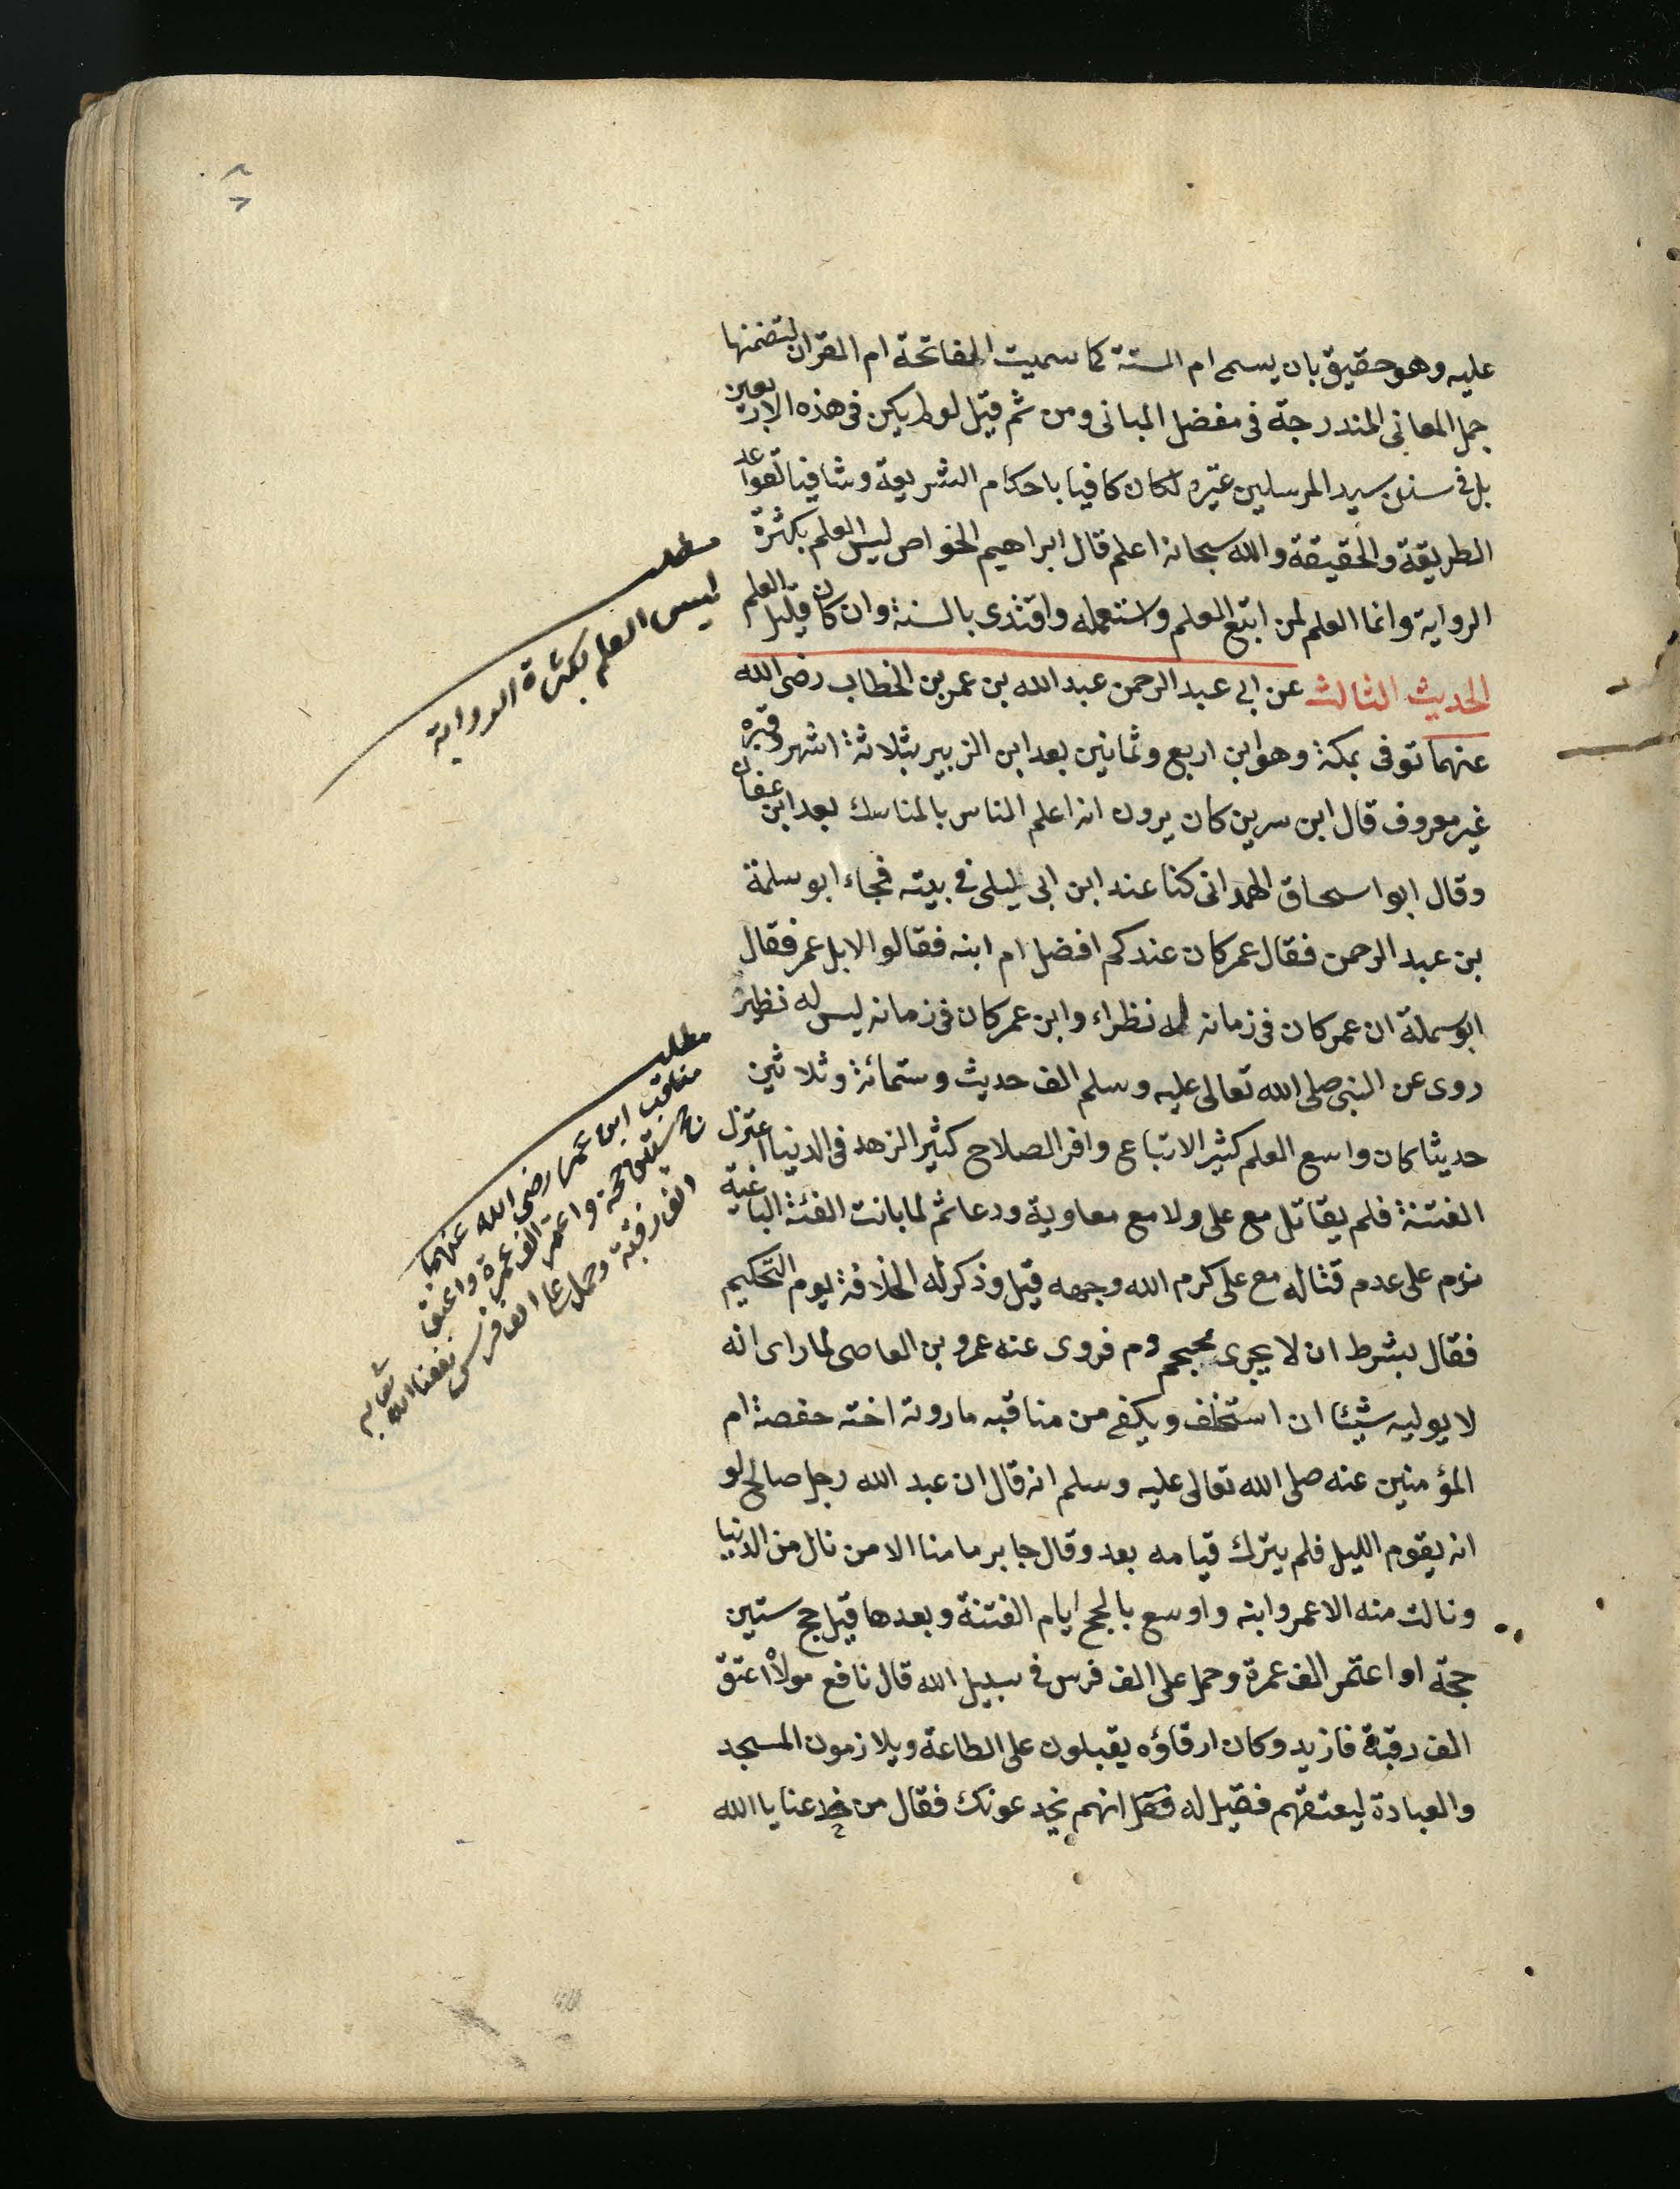 عليه وهو حقيق بان يسمى ام السنة كما سميت الفاتحة ام القران لتضمنها
جمل المعاني المندرجة في مفضل المباني ومن ثم قيل لو لم يكن في هذه الاربعين
بل في سنن سيد المرسلين غيره لكان كافيا باحكام الشريعة وشافيا لقواعد
الطريقة والحقيقة والله سبحانه اعلم قال ابراهيم الخواص ليس العلم بكثرة
الرواية وانما العلم لمن اتبع العلم واستعمله واقتدى بالسنة وان كان قليل العلم
الحديث الثالث عن ابي عبد الرحمن عبد الله بن عمر بن الخطاب رضى الله
عنهما توفى بمكة وهو ابن اربع وثمانين بعد ابن الزبير بثلاثة اشهر وقبره
غير معروف قال ابن سرين كان يرون انه اعلم الناس بالمناسك بعد ابن عفان
وقال ابو اسحاق الهمداني كنا عند ابن ابي ليلى في بيته فجاء ابو سلمة
بن عبد الرحمن فقال عمر كان عندكم افضل ام ابنه فقالوا لا بل عمر فقال
ابو سملة ان عمر كان في زمانه له نظراء وابن عمر كان في زمانه ليس له نظير
روى عن النبي صلى الله تعالى عليه وسلم الف حديث وستمائة وثلاثين
حديثا كان واسع العلم كثير الاتباع وافر الصلاح كثير الزهد في الدنيا اعتزل
الفتنة فلم يقاتل مع على ولا مع معاوية ودعا ثم لما بانت الفئة الباغية
ندم على عدم قتاله مع على كرم الله وجهه قيل وذكر له الخلافة يوم التحكيم
فقال بشرط ان لا يجرى دم فروى عنه عمرو بن العاصى لما راى انه
لا يوليه شيئا ان استخلف ويكفى من مناقبه ما روته اخته حفصة ام
المؤمنين عنه صلى الله تعالى عليه وسلم انه قال ان عبد الله رجل صالح لو
انه يقوم الليل فلم يترك قيامه بعد وقال جابر ما منا الا من نال من الدنيا
ونالت منه الا عمر وابنه واوسع بالحج ايام الفتنة وبعدها قيل حج ستين
حجة او اعتمر الف عمرة وحمل على الف فرس في سبيل الله قال نافع مولاه اعتق
الف رقبة فازيد وكان ارقاؤه يقبلون على الطاعة ويلازمون المسجد
والعبادة ليعتقهم فقيل له انهم يخدعونك فقال من خدعنا بالله
مطلب
ليس العلم بكثرة الرواية
مطلب
مناقب ابن عمر رضى الله عنهما
حج ستين حجة واعتمر الف عمرة واعتق
الف رقبة وحمل على الف فرس نفعنا الله
تعالى به